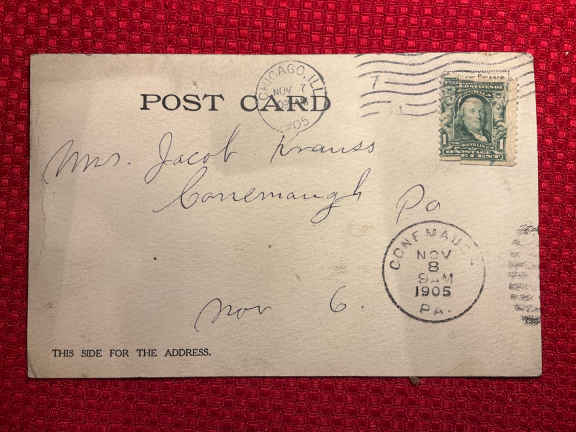 CHICAGO, ILL.
NOV 7
POST CARD
Mrs. Jacob Krauss
Conemaugh Pa
CONEMAUGH
NOV
8
8 AM
1905
PA.
Nov 6.
THIS SIDE FOR THE ADDRESS.